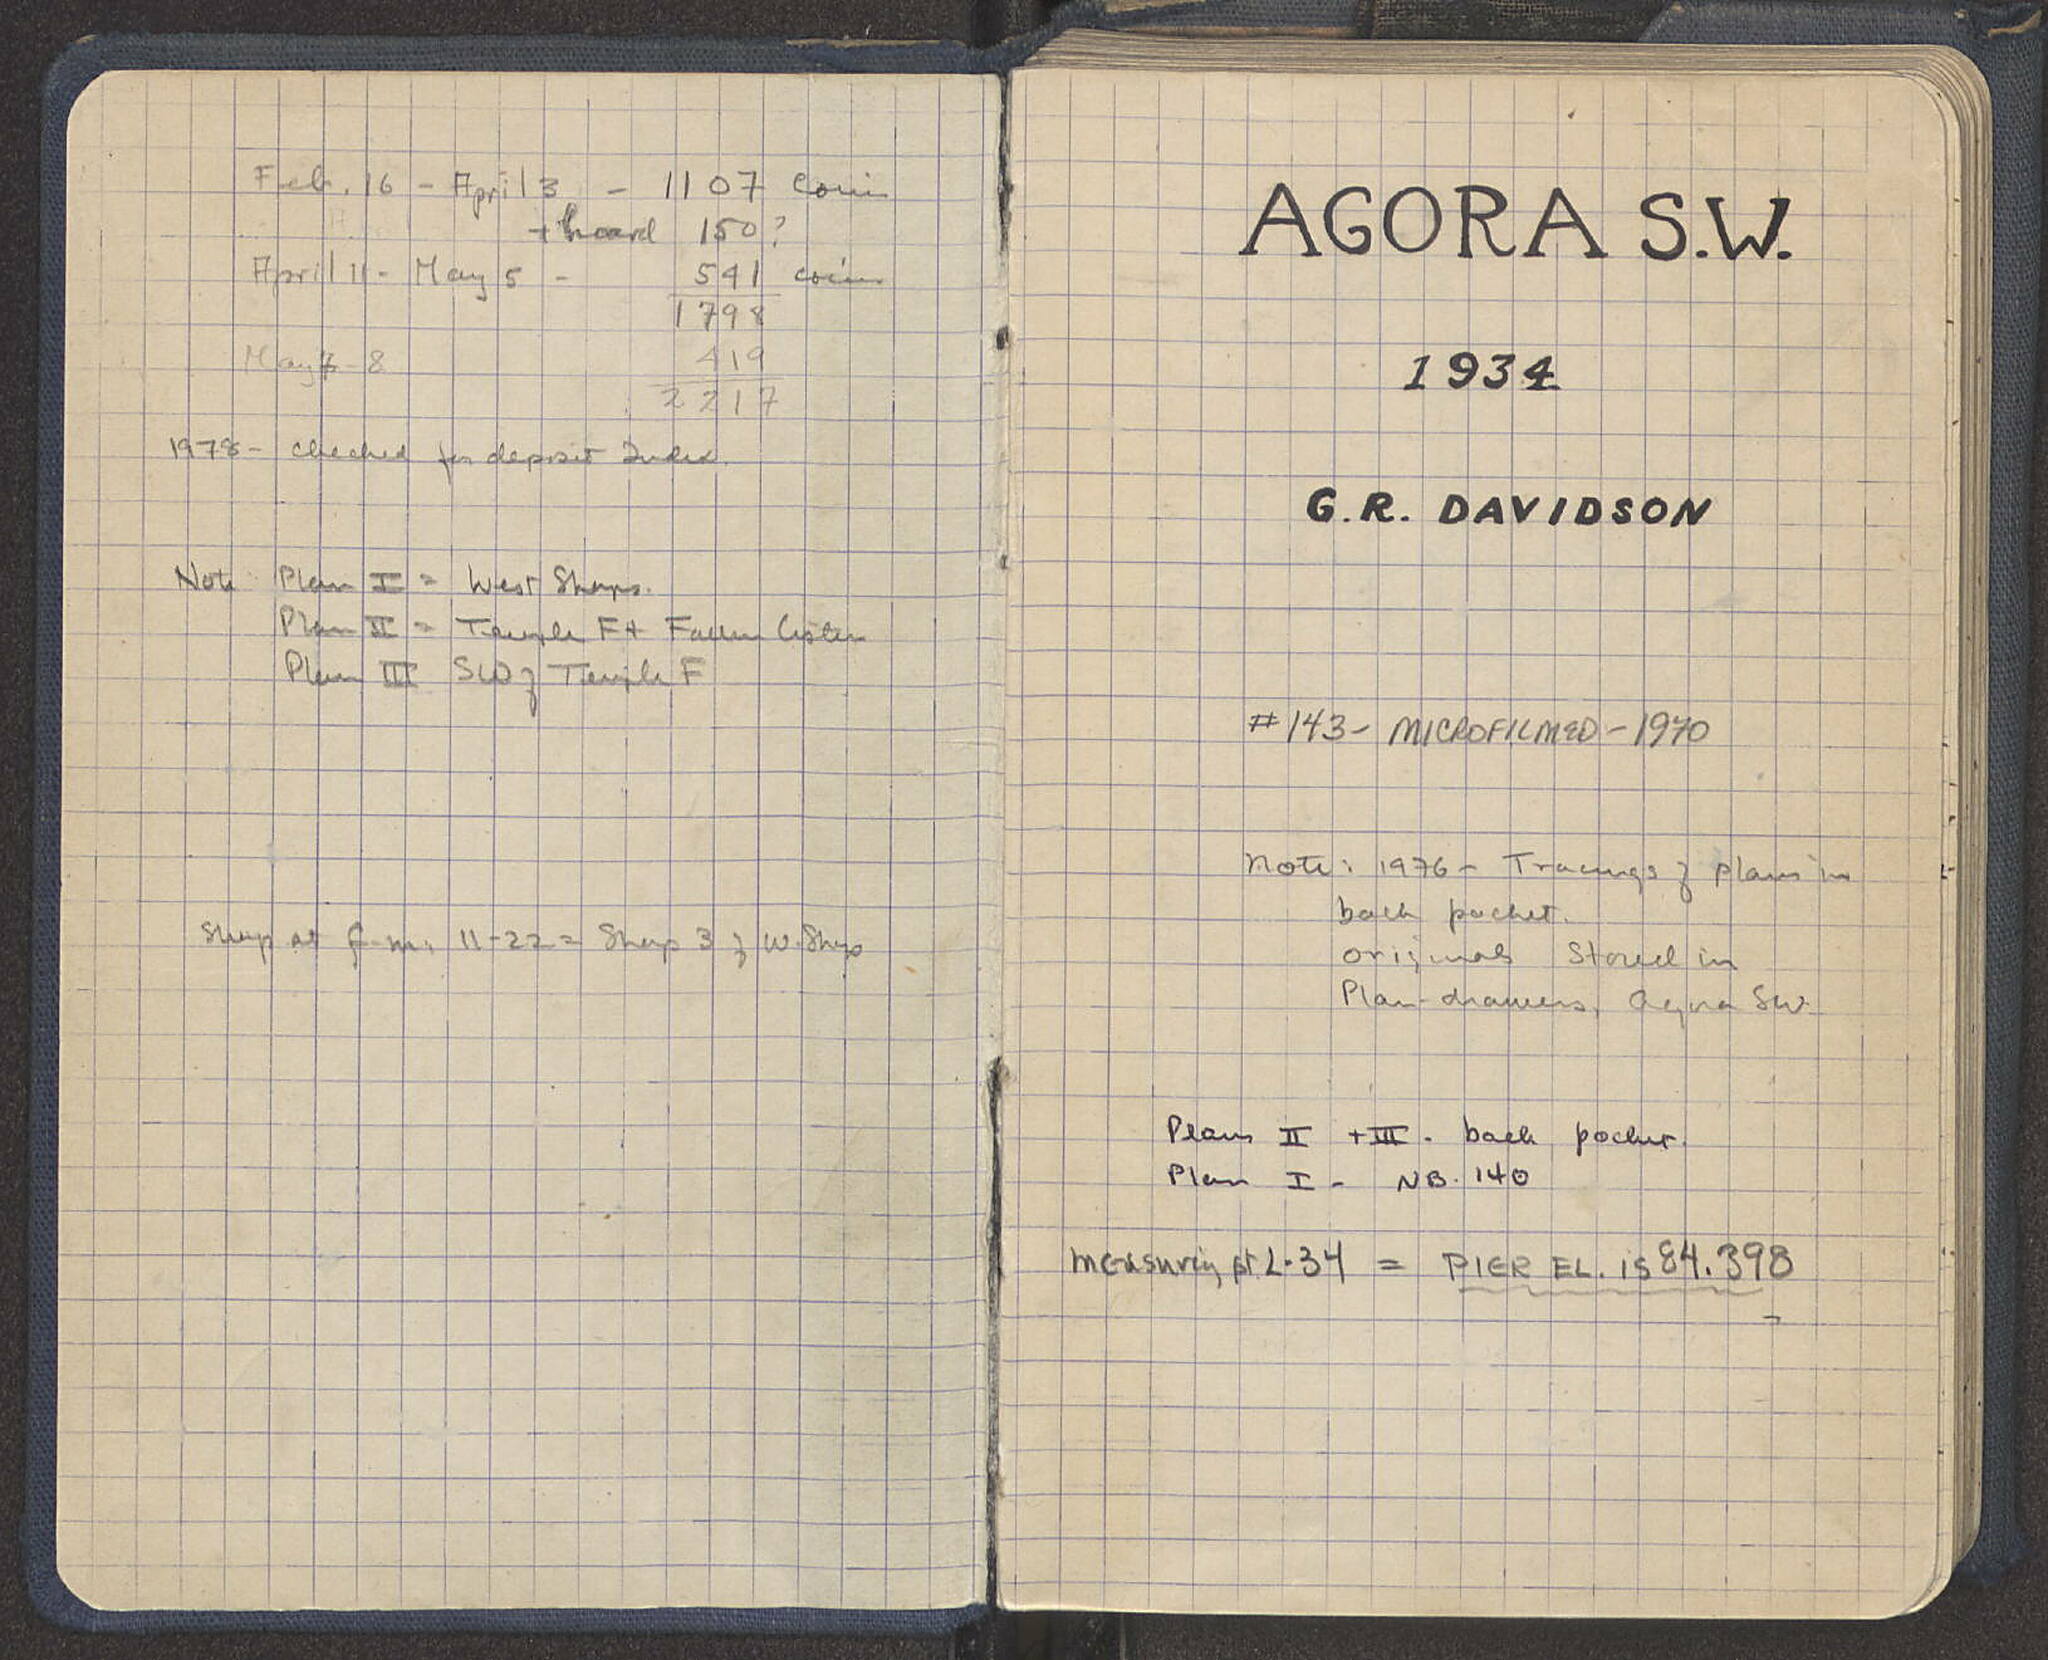 Feb. 16 - April 3 - 1107 coins
+ hoard 150?
April 11 - May 5 - 541 coins
1798
May 7-8 419
2217
1978 - checked for deposit Index.
Note Plan I = West Shops.
Plan II = Temple F +
Plan III SW of Temple F
Shop at 11-22 = Shop 3 of W. Shops
AGORA S.W.
1934
G.R. DAVIDSON
#143 - MICROFILMED - 1970
Note: 1976 - Tracings of plans in
back pocket.
originals stored in
Plan-drawers, Agora SW.
Plans II + III - back pocket.
Plan I - NB. 140
Measuring pt L-34 = PIER EL. is 84.398